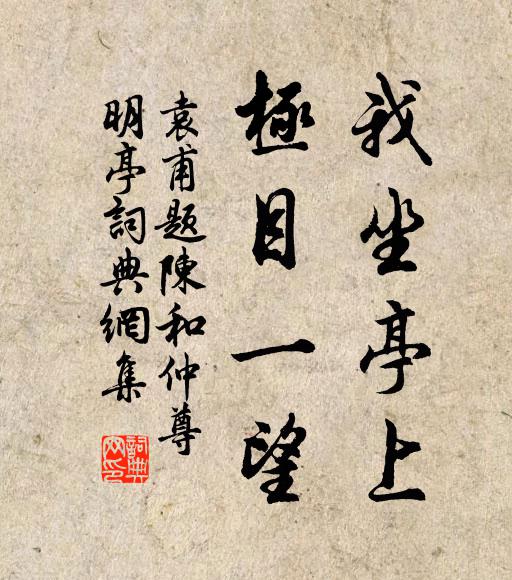 我坐亭上
極目一望
袁甫題陳和仲尊
明亭詞典網集
詞典網印